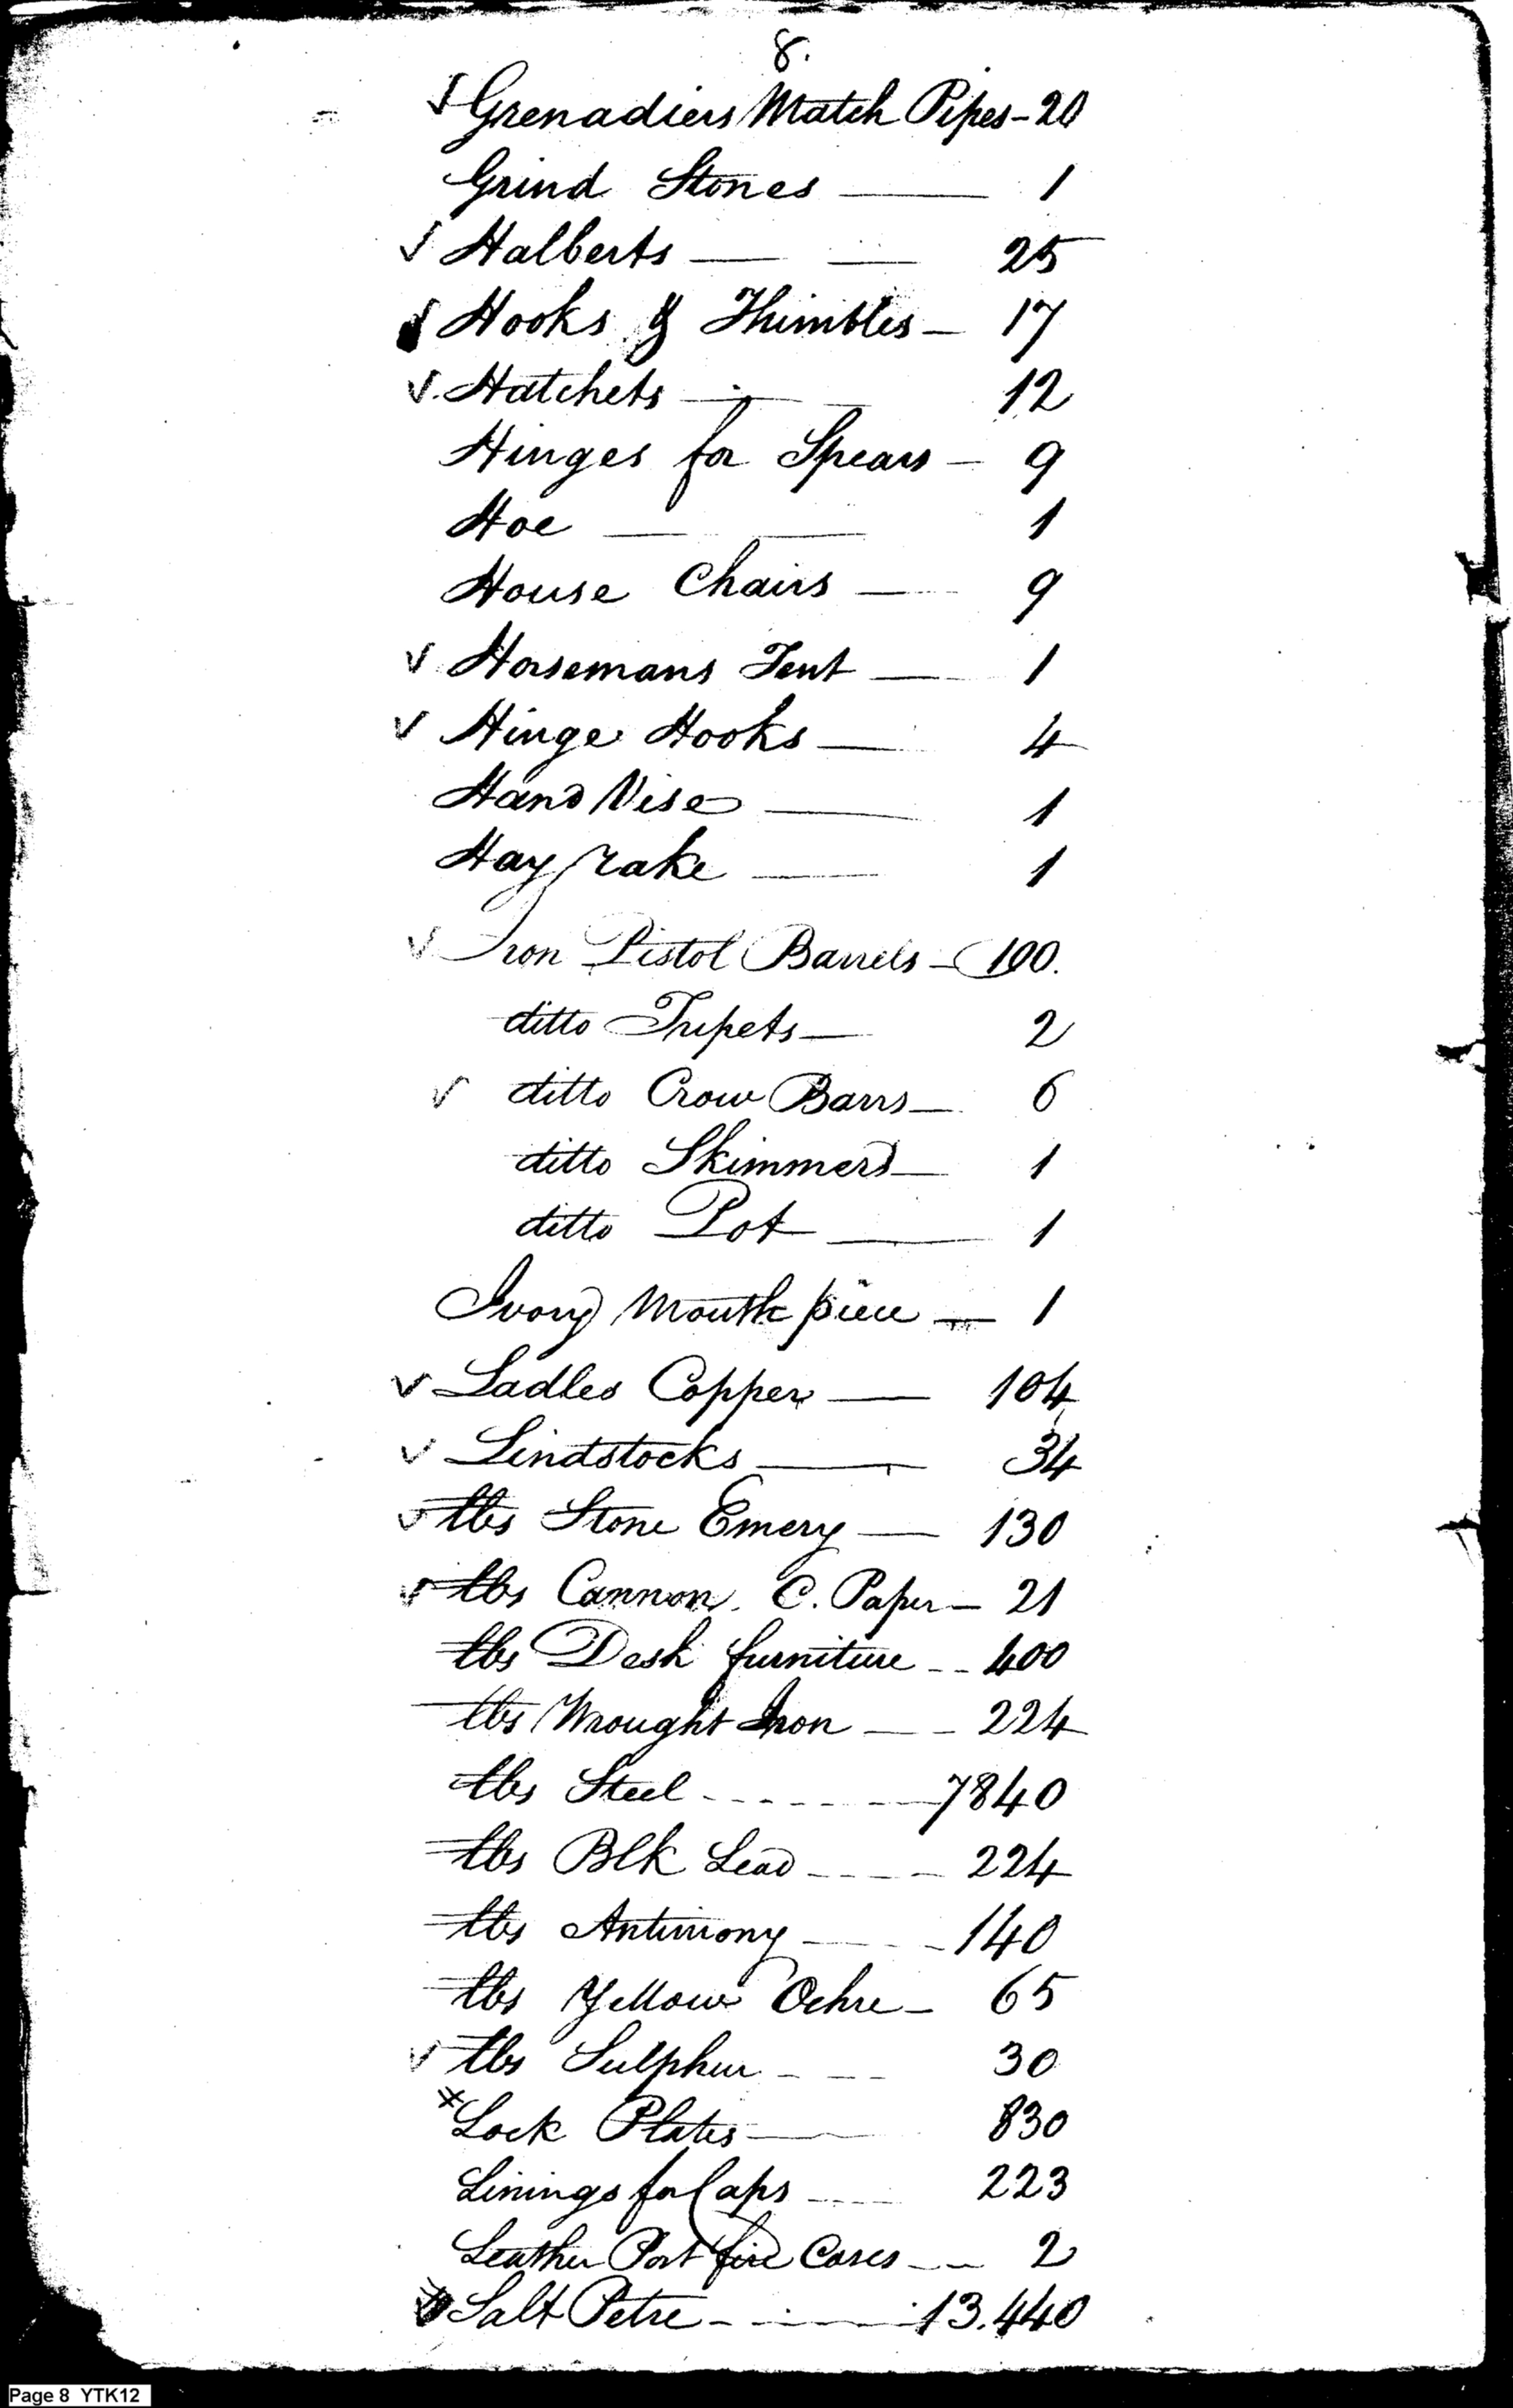 8.
√ Grenadiers Match Pipes - 20
Grind Stones — 1
√ Halberts — — 25
√ Hooks & Thimbles — 17
√ Hatchets — — 12
Hinges for Spears — 9
Hoe — — 1
House Chairs — 9
√ Horsemans Tent — 1
√ Hinge Hooks — 4
Hand Vise — 1
Hay rake — 1
√ Iron Pistol Barrels — 100.
ditto Tripets — 2
√ ditto Crow Barrs — 6
ditto Skimmers — 1
ditto Pot — 1
Ivory Mouth piece — 1
√ Ladles Copper — 104
√ Lindstocks — 34
√ lbs Stone Emery — 130
√ lbs Cannon. C. Paper — 21
lbs Desk furniture -- 400
lbs Wrought Iron — - 224
lbs Steel - - - - - - 7840
lbs Blk Lead - - - - 224
lbs Antimony - - - 140
lbs Yellow Ochre - 65
√ lbs Sulphur - - - 30
* Lock Plates — 830
Linings for Caps - - - 223
Leather Port fire Cases - - 2
Salt Petre - - - 13.440
Page 8 YTK12